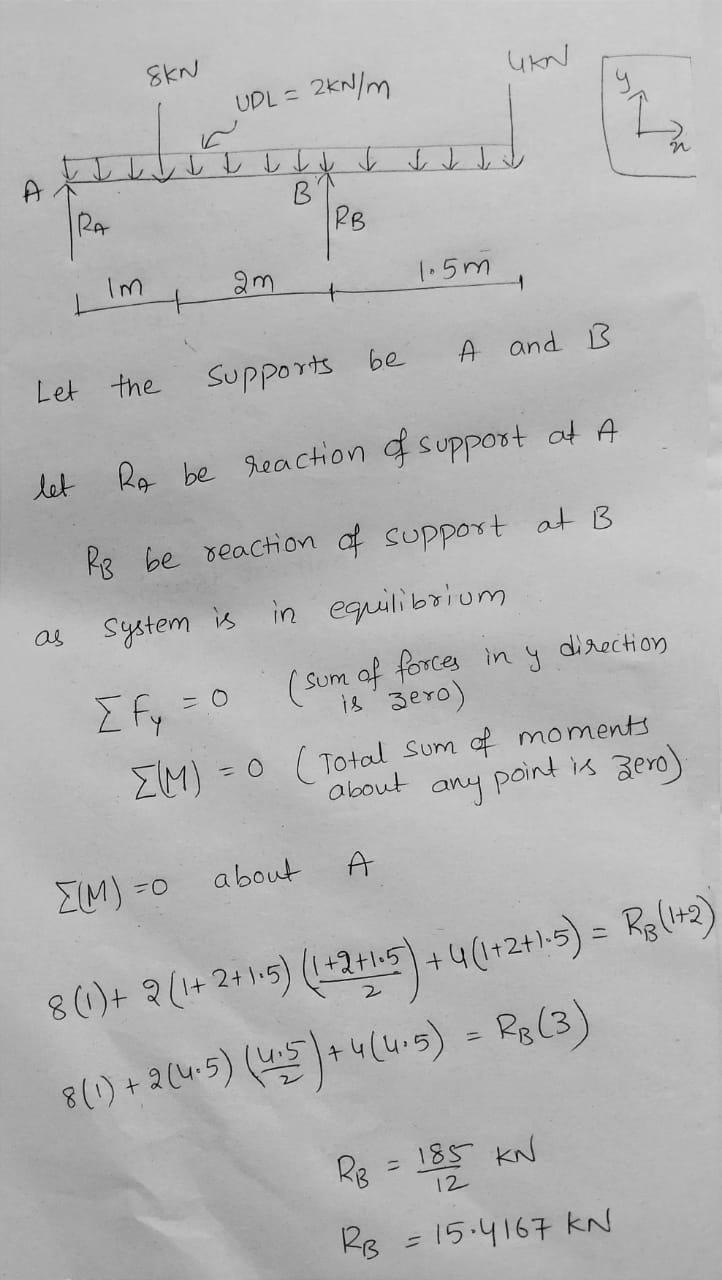 8KN
4KN
UDL = 2KN/m
y
x
A
B
RA
RB
1m
2m
1.5m
Let the supports be A and B
let RA be reaction of support at A
RB be reaction of support at B
as system is in equilibrium
Σ fy = 0 (sum of forces in y direction
is zero)
Σ(M) = 0 (Total sum of moments
about any point is zero)
Σ(M) =0 about A
8(1)+ 2(1+2+1.5) ((1+2+1.5)/2) + 4(1+2+1.5) = RB(1+2)
8(1) + 2(4.5) (4.5/2) + 4(4.5) = RB(3)
RB = 185/12 KN
RB = 15.4167 KN